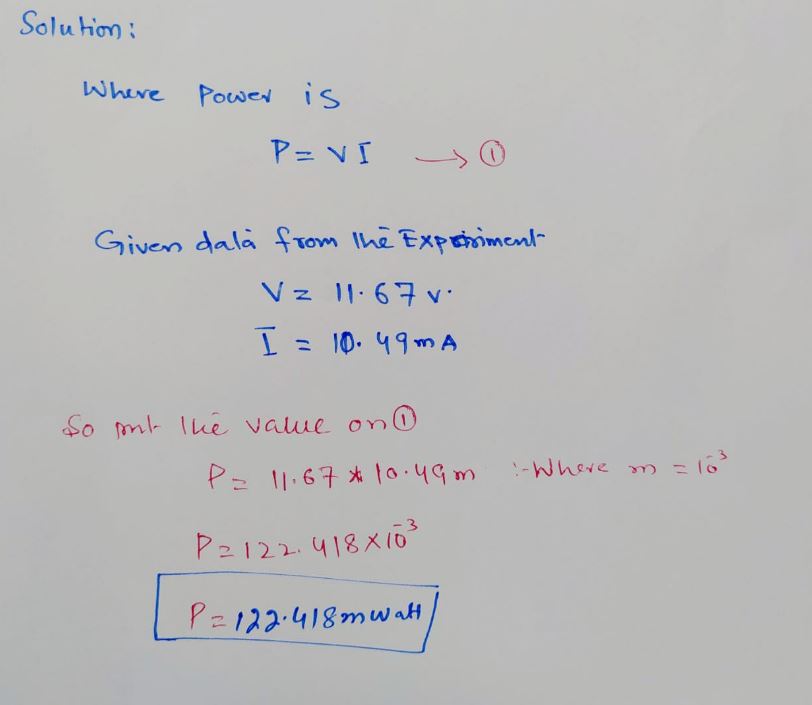 Solution:
Where Power is
P = VI → ①
Given data from the Experiment
V = 11.67 v.
I = 10.49 mA
So put the value on ①
P = 11.67 * 10.49 m :- Where m = 10⁻³
P = 122.418 × 10⁻³
P = 122.418 m watt